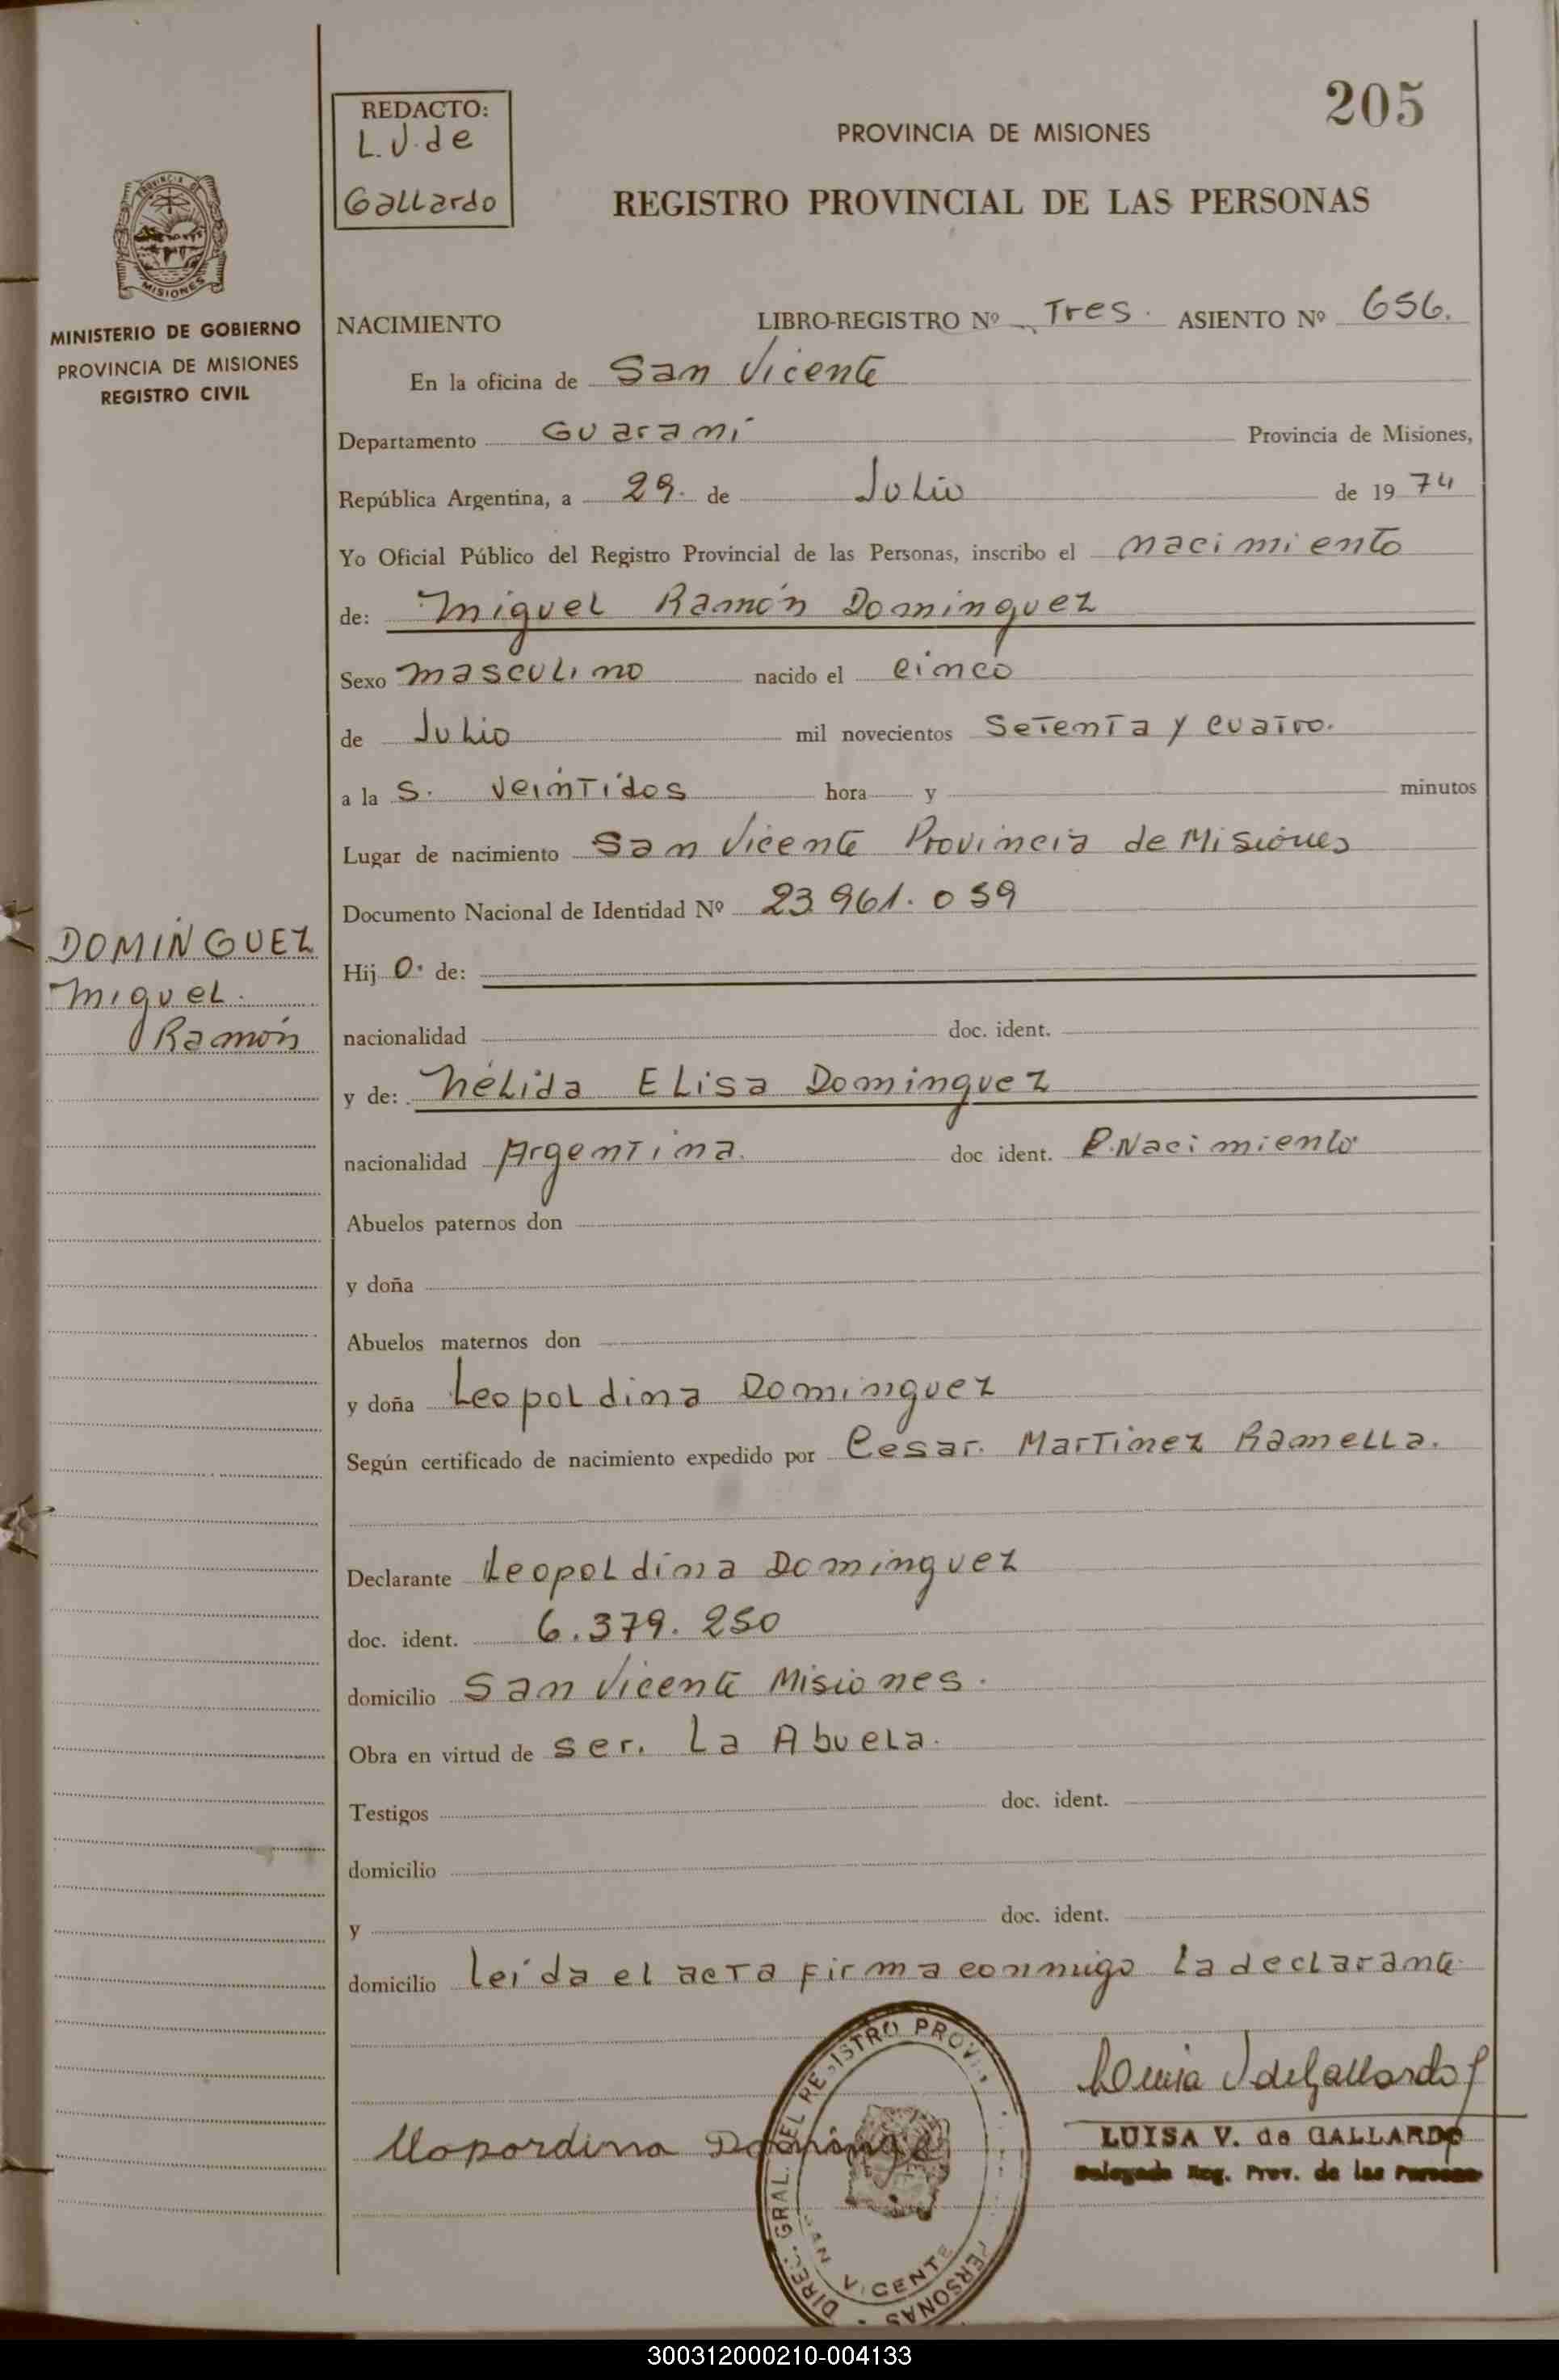 205
REDACTO:
L.V. de
Gallardo
PROVINCIA DE MISIONES
REGISTRO PROVINCIAL DE LAS PERSONAS
PROVINCIA DE
MISIONES
MINISTERIO DE GOBIERNO
PROVINCIA DE MISIONES
REGISTRO CIVIL
NACIMIENTO LIBRO-REGISTRO Nº Tres. ASIENTO Nº 656.
En la oficina de San Vicente
Departamento Guaraní Provincia de Misiones,
República Argentina, a 29. de Julio de 1974
Yo Oficial Público del Registro Provincial de las Personas, inscribo el nacimiento
de: Miguel Ramón Dominguez
Sexo masculino nacido el cinco
de Julio mil novecientos Setenta y cuatro.
a la s. veintidos hora y minutos
Lugar de nacimiento San Vicente Provincia de Misiones
Documento Nacional de Identidad Nº 23 961.059
DOMINGUEZ
Miguel.
Ramón
Hij o. de:
nacionalidad doc. ident.
y de: Nélida Elisa Dominguez
nacionalidad Argentina. doc ident. P.Nacimiento
Abuelos paternos don
y doña
Abuelos maternos don
y doña Leopoldina Dominguez
Según certificado de nacimiento expedido por Cesar. Martinez Ramella.
Declarante Leopoldina Dominguez
doc. ident. 6.379.250
domicilio San Vicente Misiones.
Obra en virtud de ser. La Abuela.
Testigos doc. ident.
domicilio
y doc. ident.
domicilio Leída el acta firma conmigo la declarante.
Luisa V de Gallardo
LUISA V. de GALLARDO
Delegada Reg. Prov. de las Personas
DIREC. GRAL. DEL REGISTRO PROV. PERSONAS
SAN VICENTE
300312000210-004133